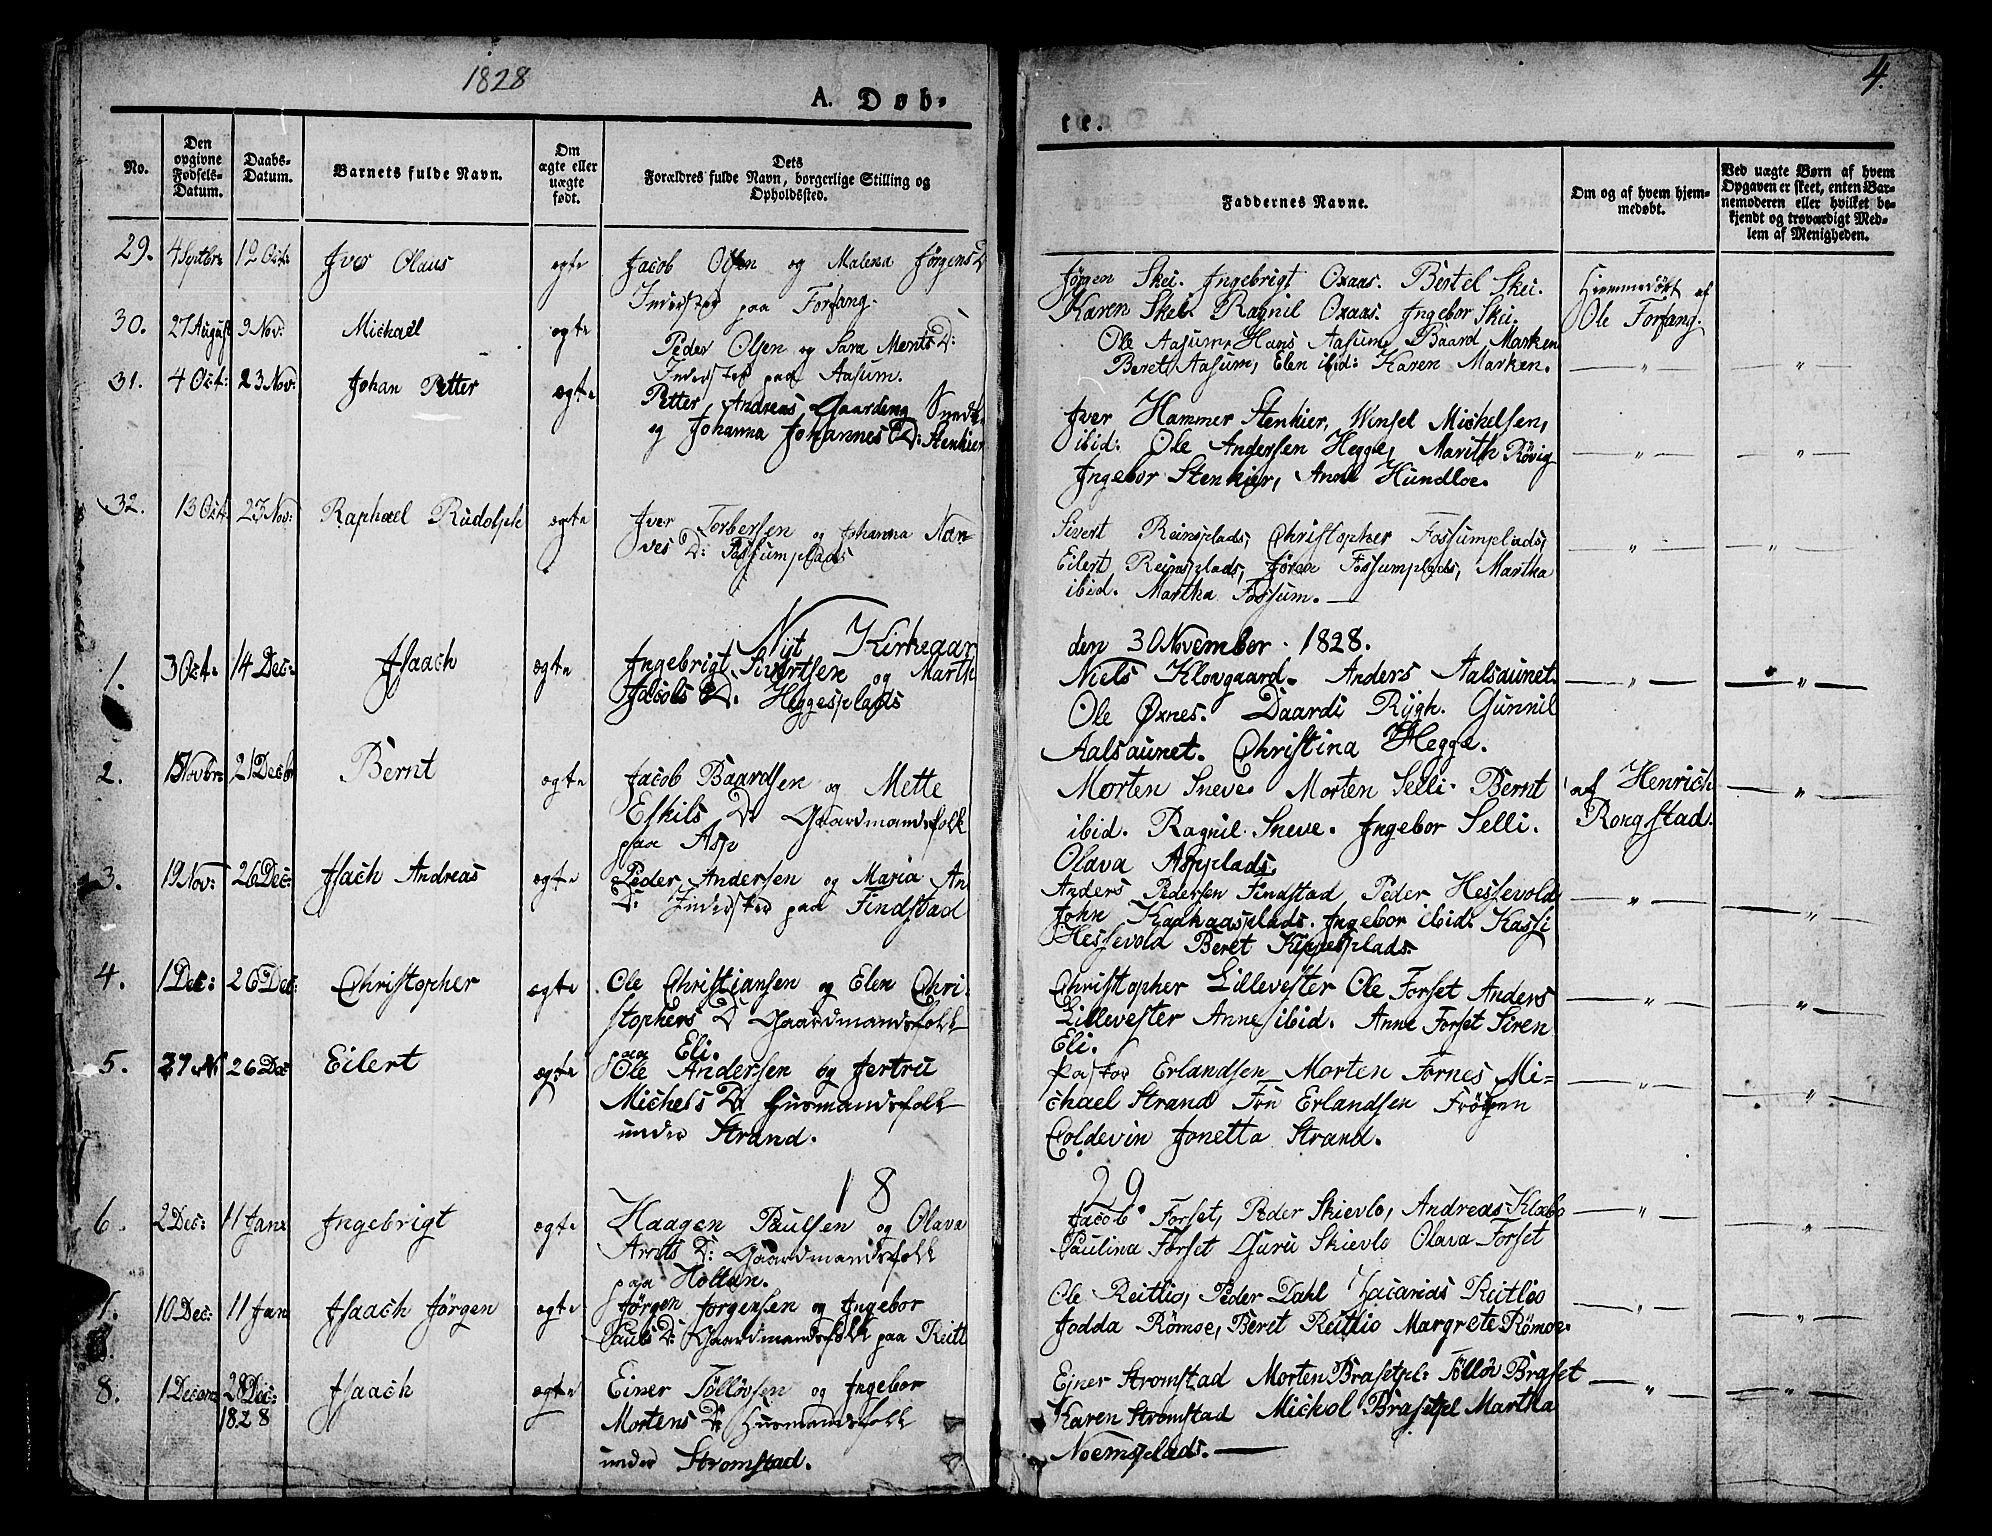 1828
4.
A. Døb-
te.
No.
Den opgivne Fødsels-Datum.
Daabs-Datum.
Barnets fulde Navn.
Om ægte eller uægte født.
Dets Forældres fulde Navn, borgerlige Stilling og Opholdssted.
Faddernes Navne.
Om og af hvem hjem-medøbt.
Ved uægte Børn af hvem Opgaven er skeet, enten Bar-nemoderen eller hvilket be-kjendt og troværdigt Med-lem af Menigheden.
29. 4 Septbr: 12 Oct: Iver Olaus ægte Jacob Olsen og Malena JørgensD
Inderster paa Forfang.
Jørgen Skei. Ingebrigt Oxaas. Bertel Skei.
Karen Skei. Ragnil Oxaas. Ingebor Skei.
Hjemmedøbt af
Ole Forfang.
30. 27 August 9 Nov: Michael ægte Peder Olsen og Sara MentsD:
Inderster paa Aasum.
Ole Aasum, Hans Aasum, Baard Marken
Beret Aasum, Elen ibid: Karen Marken.
31. 4 Oct: 23 Nov: Johan Petter ægte Petter Andreas Gaardeng Smed
og Johanna Johannes D: Stenkier
Iver Hammer Stenkier, Winsel Michelsen,
ibid: Ole Andersen Hegge, Marith Røvig
Ingebor Stenkier, Anne Hundloe.
32. 13 Oct. 23 Nov: Raphael Rudolph ægte Iver Torbersen og Johanna Nan-
ves D: Fossumplads
Sivert Reinsplads, Christopher Fossumplads,
Eilert Reinsplads, Jøren Fossumplads, Martha
ibid. Martha Fossum.
Nyt Kirkeaar
den 30 November 1828.
1. 3 Oct: 14 Dec: Isach ægte Ingebrigt Sivertsen og Marth
Jacobs D: Heggesplads
Niels Klovgaard. Anders Aalsaunet.
Ole Øxnes. Daardi Rygh. Gunnil
Aalsaunet. Christina Hegge.
2. 15 Novbr: 21 Decb Bernt ægte Jacob Baardsen og Mette
Eskils D: Gaardmandsfolk
paa Asp
Morten Sneve. Morten Selli. Bernt
ibid. Ragnil Sneve. Ingebor Selli.
Olava Aspplads.
af Henrich
Rongstad.
3. 19 Nov: 26 Dec: Isach Andreas ægte Peder Andersen og Maria An
D: Inderster paa Findstad
Anders Pedersen Findstad Peder Hessevold
John Kaahaasplads. Ingebor ibid. Kassi
Hessevold Beret Kippesplads.
4. 1 Dec: 26 Dec: Christopher ægte Ole Christiansen og Elen Chri-
stophers D: Gaardmandsfolk
paa Eli.
Christopher Lillevester Ole Forset Anders
Lillevester Anne ibid. Anne Forset Siren
Eli.
5. 27 N 26 Dec Eilert ægte Ole Andersen og Jertru
Michels D: Husmandsfolk
under Strand.
Pastor Erlandsen Morten Fornes Mi-
chael Strand Fru Erlandsen Frøken
Coldevin Jonetta Strand.
18
29
6. 2 Dec: 11 Jan: Ingebrigt ægte Haagen Paulsen og Olava
Arnts D: Gaardmandsfolk
paa Hollan.
Jacob Forset, Peder Skievlo, Andreas Klæbo
Paulina Forset Guru Skievlo Olava Forset
7. 10 Dec: 11 Jan Isaach Jørgen ægte Jørgen Jorgensen og Ingebor
Pauls D: Gaardmandsfolk paa Reitl
Ole Reitlio, Peder Dahl Zacarias Reitloo
Jodda Römoe, Beret Reitlio Margrete Römoe.
8. 1 Decem 28 Dec: 1828 Isaach ægte Einer Tölløvsen og Ingebor
Mortens D: Husmandsfolk
under Stromstad.
Ejner Stromstad Morten Brasetpl: Töllöv Braset
Karen Stromstad Mickol Brasetpl Martha
Noemsplads.